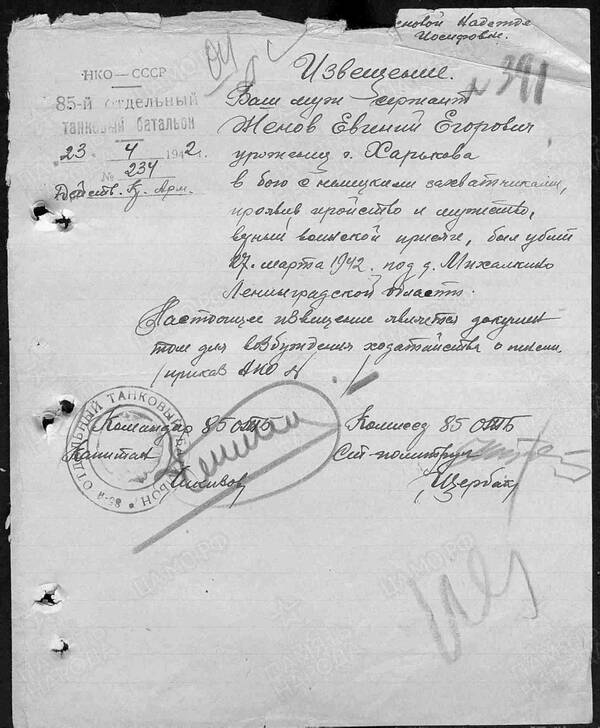 еновой Надежде
Иосифовне.
НКО — СССР
85-й отдельный
танковый батальон
23 4 1942 г.
№ 234
Действ. Кр. Арм.
Извещение.
№ 391
Ваш муж Сержант
Женов Евгений Егорович
уроженец г. Харькова
в бою с немецкими захватчиками,
проявив геройство и мужество,
верный воинской присяге, был убит
27. марта 1942. под д. Михалкино
Ленинградской области.
Настоящее извещение является докумен
том для возбуждения ходатайства о пенсии.
/приказ НКО №
Командир 85 ОТБ
Комиссар 85 ОТБ
Капитан
Ст. политрук
/Щербак/
ОТДЕЛЬНЫЙ ТАНКОВЫЙ БАТАЛЬОН
85-й
ЦАМО РФ